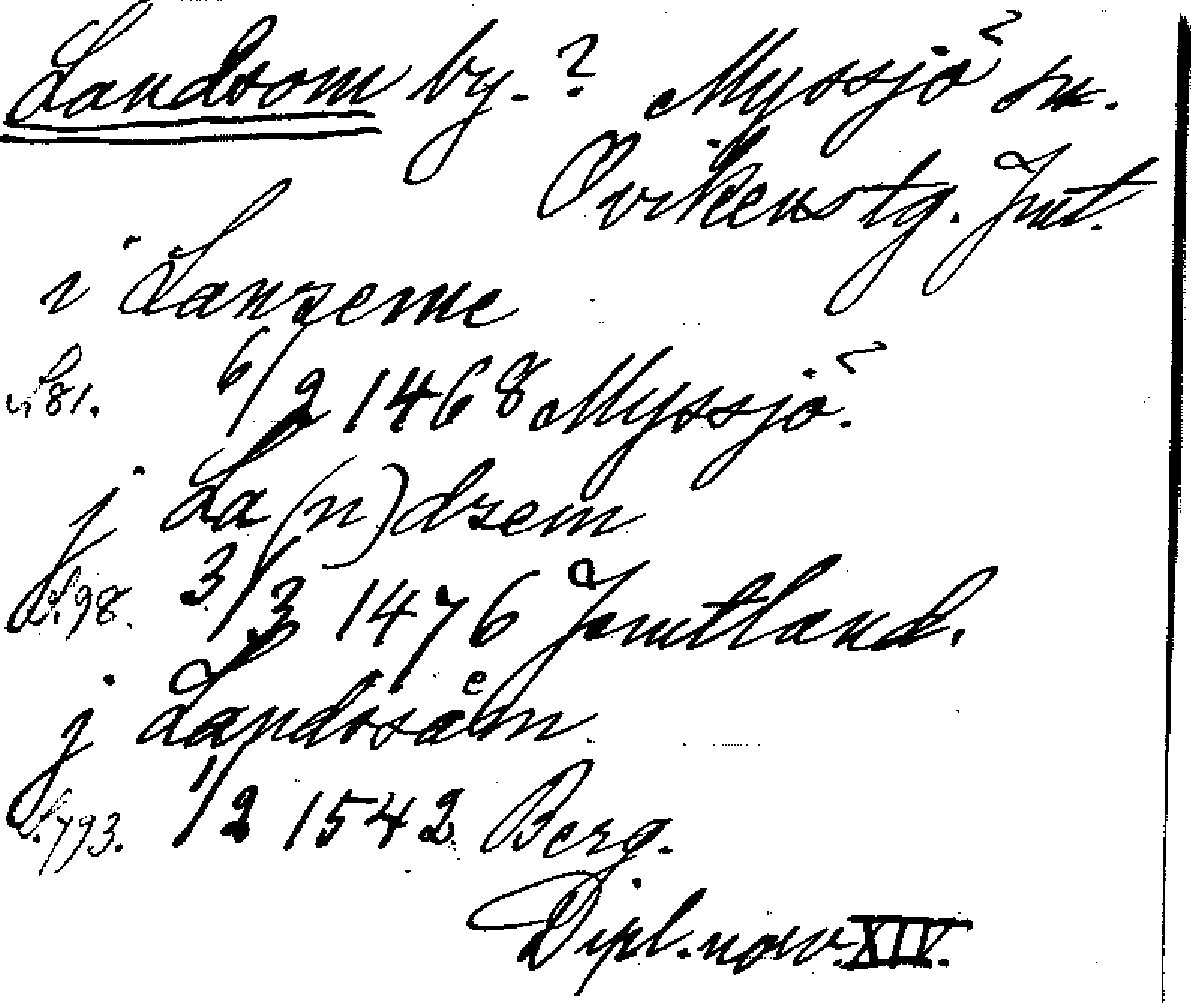 Landsom by. ? Myssjö sn.
Ovikens tg. Jmt.
i Lanzeme
s. 81. 6/2 1468 Myssjö.
j La(n)dzem
s. 98. 3/3 1476 Jamtland.
j Landzsåem
s. 793. 1/2 1542 Berg.
Dipl. norv. XIV.